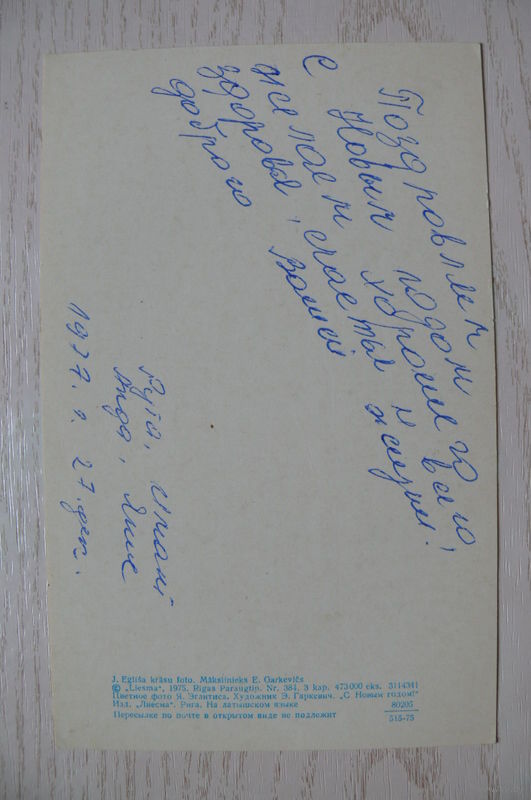 Поздровляем
С Новым годом
желаем хорошего
здоровья, счастья и всего
доброго Вашей жизни!
Рута,
Янис
1977. г. 27. дек.
J. Eglīša krāsu foto. Mākslinieks E. Garkevičs
© „Liesma", 1975. Rīgas Paraugtip. Nr. 384, 3 kap. 473000 eks. 3114341
Цветное фото Я. Эглитиса. Художник Э. Гаркевич. „С Новым годом!"
Изд. „Лиесма". Рига. На латышском языке 80205
Пересылке по почте в открытом виде не подлежит 515-75